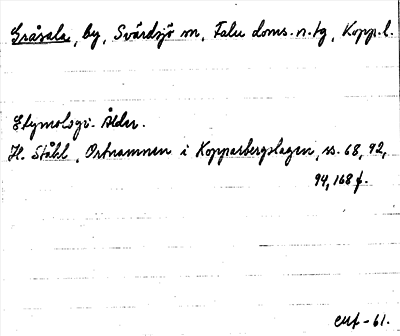 Gråsala, by, Svärdsjö sn, Falu doms. n. tg, Kopp. l.
Etymologi. Ålder.
H. Ståhl, Ortnamnen i Kopparbergslagen, ss. 68, 92,
94, 168 f.
-61.